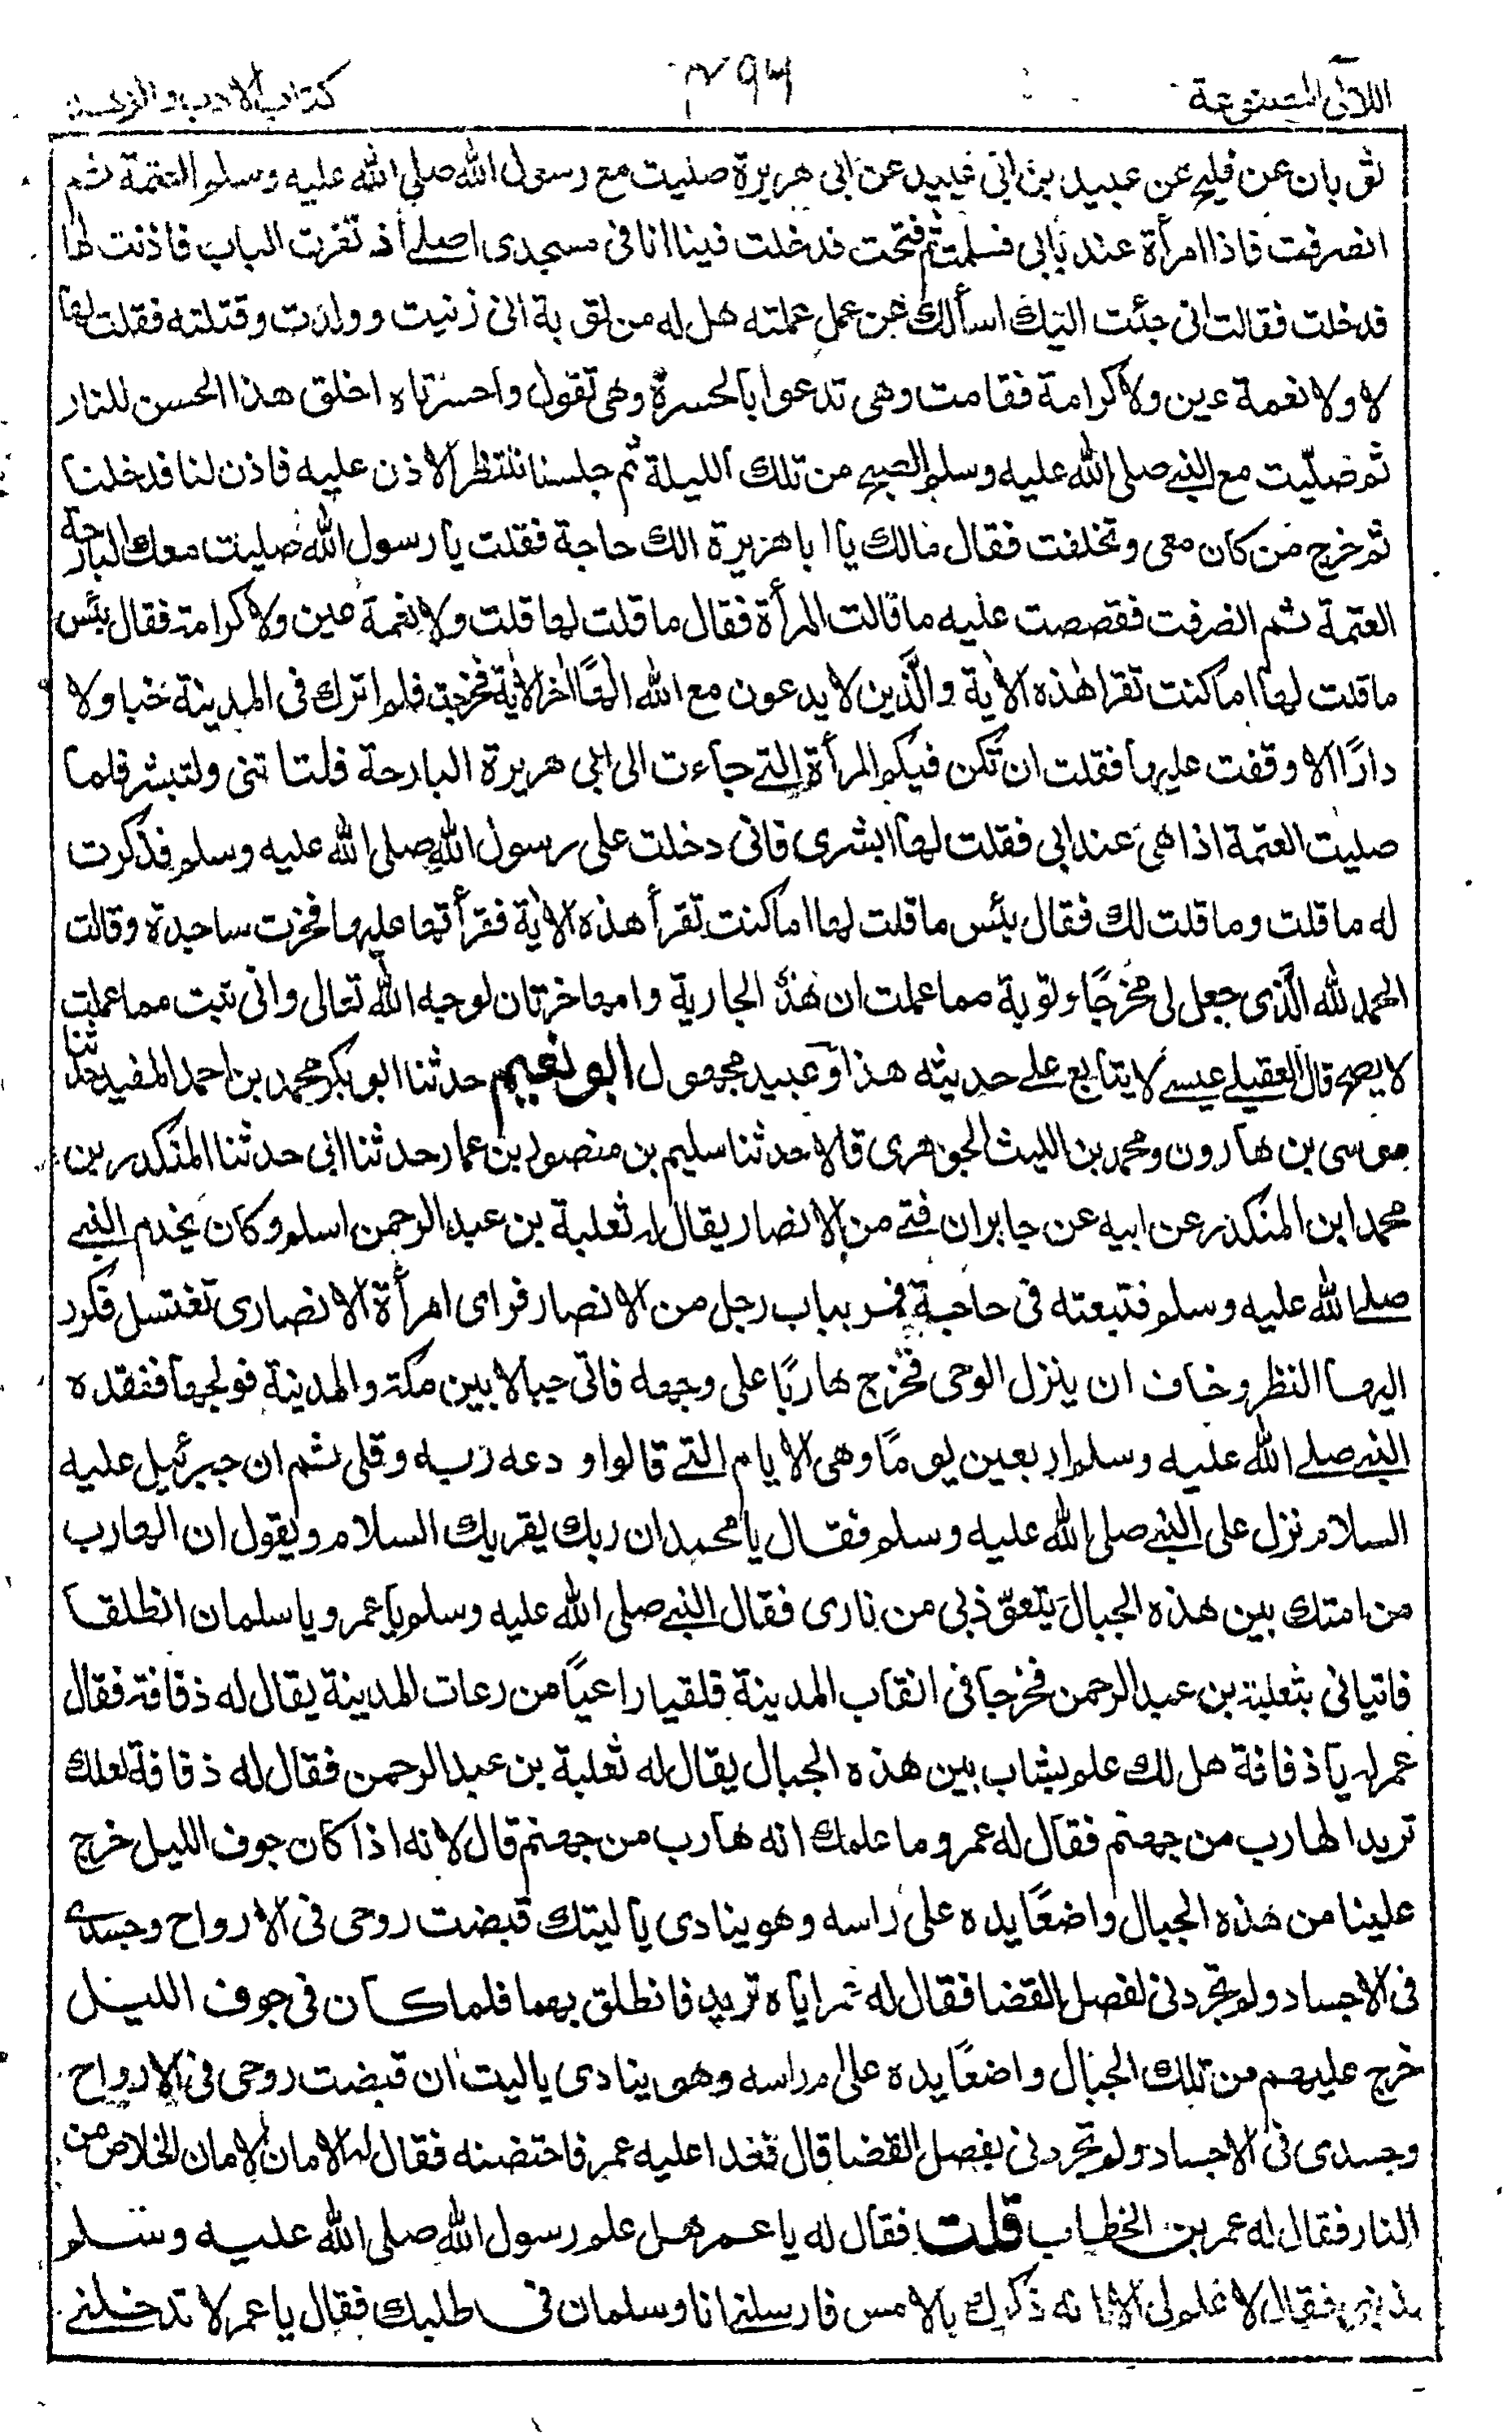 اللآلى المصنوعة
۴۹۳
كتاب الادب والزهد
ثوبان عن فليح عن عبيد بن ابى عبيد عن ابى هريرة صليت مع رسول الله صلى الله عليه وسلم العتمة ثم
انصرفت فاذا امرأة عند بابى فسلمت ثم فتحت فدخلت فبينا انا فى مسجدى اصلى اذ نقرت الباب فاذنت لها
فدخلت فقالت انى جئت اليك اسألك عن عمل عملته هل له من توبة انى زنيت وولدت وقتلته فقلت لها
لا ولا نعمة عين ولا كرامة فقامت وهى تدعوا بالحسرة وهى تقول واحسرتاه اخلق هذا الحسن للنار
ثم صليت مع النبى صلى الله عليه وسلم الصبح من تلك الليلة ثم جلسنا ننتظر الاذن عليه فاذن لنا فدخلنا
ثم خرج من كان معى وتخلفت فقال مالك يا ابا هريرة الك حاجة فقلت يا رسول الله صليت معك البارحة
العتمة ثم انصرفت فقصصت عليه ما قالت المرأة فقال ما قلت لها قلت ولا نعمة عين ولا كرامة فقال بئس
ما قلت لها اما كنت تقرا هذه الاية والذين لا يدعون مع الله الهًا اخر الاية فخرجت فلم اترك فى المدينة خبا ولا
دارًا الا وقفت عليها فقلت ان تكن فيكم المرأة التى جاءت الى ابى هريرة البارحة فلتاتنى ولتبشر فلما
صليت العتمة اذا هى عند بابى فقلت لها ابشرى فانى دخلت على رسول الله صلى الله عليه وسلم فذكرت
له ما قلت وما قلت لك فقال بئس ما قلت لها اما كنت تقرأ هذه الاية فقرأتها عليها فخرت ساجدة وقالت
الحمد لله الذى جعل لى مخرجًا وتوبة مما عملت ان هذه الجارية وامها حرتان لوجه الله تعالى وانى تبت مما عملت
لا يصح قال العقيلى عيسى لا يتابع على حديثه هذا وعبيد مجهول ابو نعيم حدثنا ابو بكر محمد بن احمد المفيد حدثنا
موسى بن هارون ومحمد بن الليث الجوهرى قالا حدثنا سليم بن منصور بن عمار حدثنا ابى حدثنا المنكدر بن
محمد ابن المنكدر عن ابيه عن جابر ان فتى من الانصار يقال له ثعلبة بن عبد الرحمن اسلم وكان يخدم النبى
صلى الله عليه وسلم فتبعته فى حاجة فمر بباب رجل من الانصار فراى امرأة الانصارى تغتسل فكرر
اليها النظر وخاف ان ينزل الوحى فخرج هاربًا على وجهه فاتى جبالا بين مكة والمدينة فولجها ففقده
النبى صلى الله عليه وسلم اربعين يومًا وهى الايام التى قالوا ودعه ربه وقلى ثم ان جبرئيل عليه
السلام نزل على النبى صلى الله عليه وسلم فقال يا محمد ان ربك يقريك السلام ويقول ان الهارب
من امتك بين هذه الجبال يتعوّذ بى من نارى فقال النبى صلى الله عليه وسلم يا عمر ويا سلمان انطلقا
فاتيانى بثعلبة بن عبد الرحمن فخرجا فى انقاب المدينة فلقيا راعيًا من رعات المدينة يقال له ذفافة فقال
عمر له يا ذفافة هل لك علم بشاب بين هذه الجبال يقال له ثعلبة بن عبد الرحمن فقال له ذفافة لعلك
تريد الهارب من جهنم فقال له عمر وما علمك انه هارب من جهنم قال لانه اذا كان جوف الليل خرج
علينا من هذه الجبال واضعًا يده على راسه وهو ينادى ياليتك قبضت روحى فى الارواح وجسدى
فى الاجساد ولم تجردنى لفصل القضا فقال له عمر اياه تريد فانطلق بهما فلما كان فى جوف الليل
خرج عليهم من تلك الجبال واضعًا يده على راسه وهو ينادى ياليت ان قبضت روحى فى الارواح
وجسدى فى الاجساد ولم تجردنى لفصل القضا قال فغدا عليه عمر فاحتضنه فقال له الامان الامان الخلاص من
النار فقال له عمر بن الخطاب قلت فقال له يا عمر هل علم رسول الله صلى الله عليه وسلم
بذنبى فقال لا علم لى الا انه ذكرك بالامس فارسلنى انا وسلمان فى طلبك فقال يا عمر لا تدخلنى